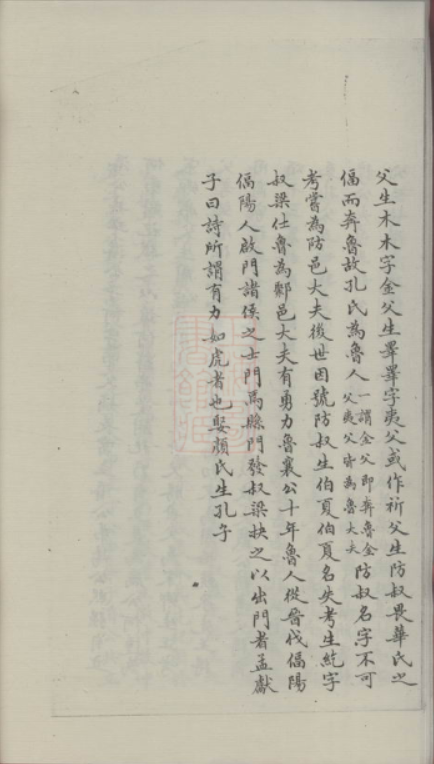 父生木木字金父生睪睪字夷父或作祈父生防叔畏華氏之
偪而奔魯故孔氏為魯人一謂金父即奔魯金父夷父皆為魯大夫防叔名字不可
考嘗為防邑大夫後世因號防叔生伯夏伯夏名失考生紇字
叔梁仕魯為鄹邑大夫有勇力魯襄公十年魯人從晉伐偪陽
偪陽人啟門諸侯之士門焉縣門發叔梁抉之以出門者孟獻
子曰詩所謂有力如虎者也娶顏氏生孔子